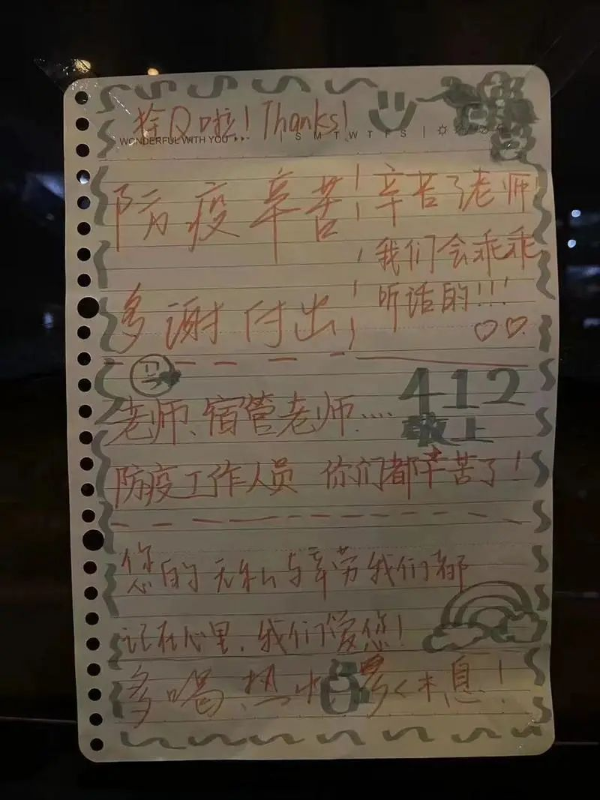 拴Q啦！Thanks!
WONDERFUL WITH YOU ...
S M T W T F S
防疫辛苦！
多谢付出！
辛苦了老师！
我们会乖乖
听话的!!!
412
敬上
老师、宿管老师.....
防疫工作人员 你们都辛苦了！
您的无私与辛劳我们都
记在心里，我们爱您！
多喝热水 多休息！